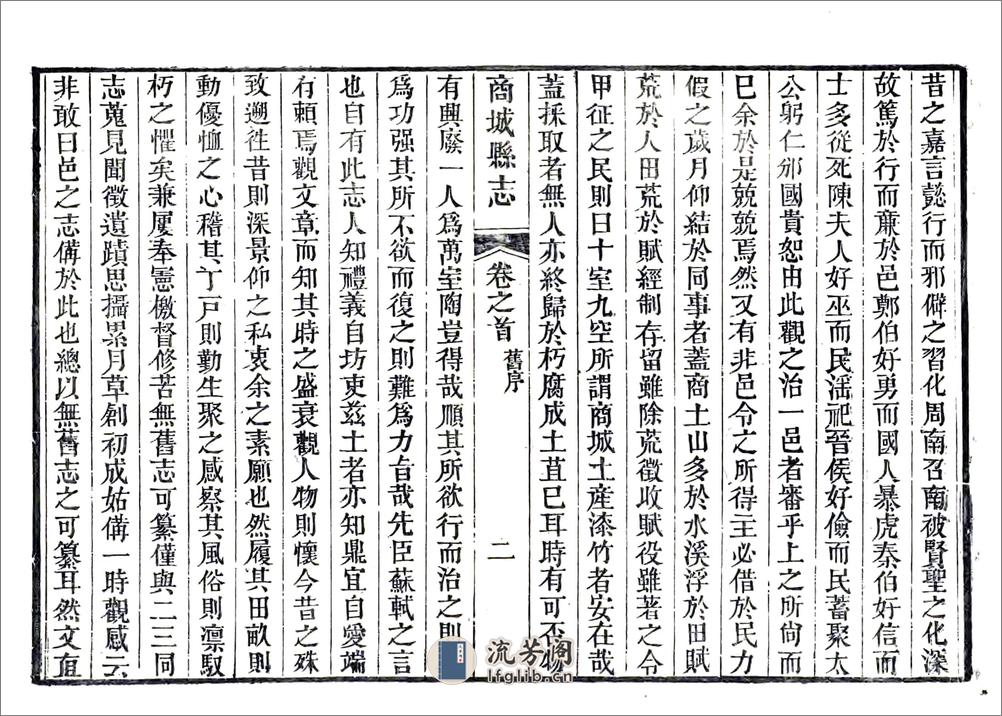 昔之嘉言懿行而邪僻之習化周南召南被賢聖之化深
故篤於行而亷於邑鄭伯好勇而國人暴虎秦伯好信而
士多從死陳夫人好巫而民滛祀晉侯好儉而民蓄聚太
公躬仁邠國貴恕由此觀之治一邑者審乎上之所尙而
巳余於是兢兢焉然又有非邑令之所得主必借於民力
假之歲月仰結於同事者蓋商土山多於水溪浮於田賦
荒於人田荒於賦經制存留雖除荒徵收賦役雖著之令
甲征之民則曰十室九空所謂商城土産漆竹者安在哉
蓋採取者無人亦終歸於朽腐成土苴巳耳時有可否物
商城縣志
卷之首
舊序
二
有興廢一人爲萬室陶豈得哉順其所欲行而治之則
爲功强其所不欲而復之則難爲力旨哉先臣蘇軾之言
也自有此志人知禮義自坊吏玆土者亦知鼎宜自愛端
有賴焉觀文章而知其時之盛衰觀人物則懷今昔之殊
致遡徃昔則深景仰之私衷余之素願也然履其田畝則
動優恤之心稽其丁戸則勤生聚之感察其風俗則凛馭
朽之懼矣兼屢奉憲檄督修苦無舊志可纂僅與二三同
志蒐見聞徵遺蹟思攝累月草創初成姑備一時觀感云
非敢曰邑之志備於此也總以無舊志之可纂耳然文直
流芳阁
lfglib.cn